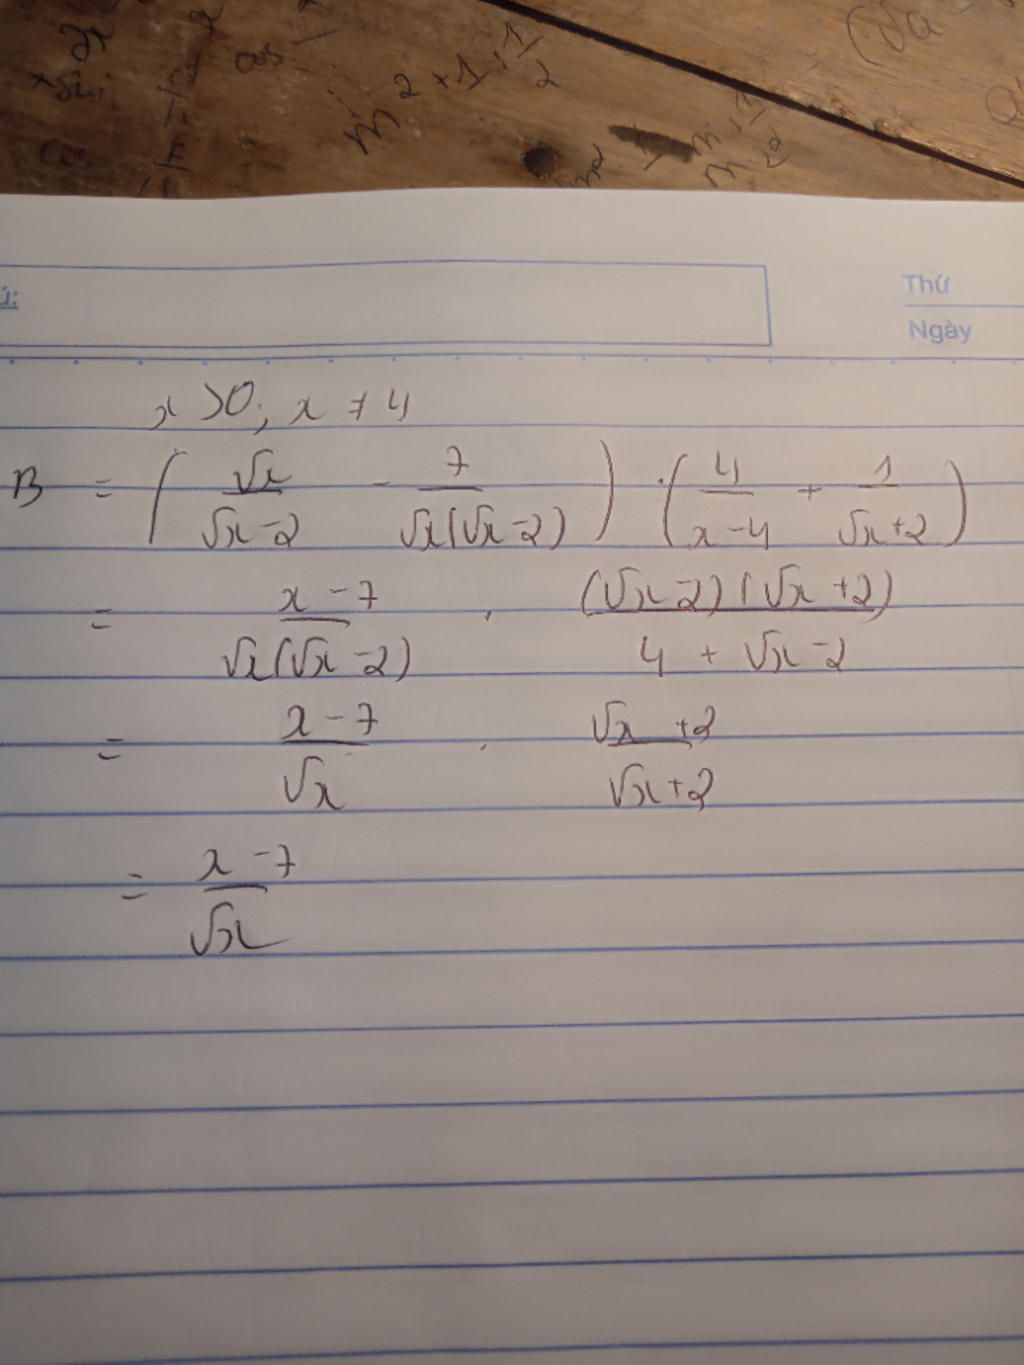 m² + 1 : 1/2
Thứ
Ngày
x > 0; x ≠ 4
B = ( √x/(√x-2) - 7/(√x(√x-2)) ) : ( 4/(x-4) + 1/(√x+2) )
= (x-7)/(√x(√x-2)) . ((√x-2)(√x+2))/(4+√x-2)
= (x-7)/√x . (√x+2)/(√x+2)
= (x-7)/√x